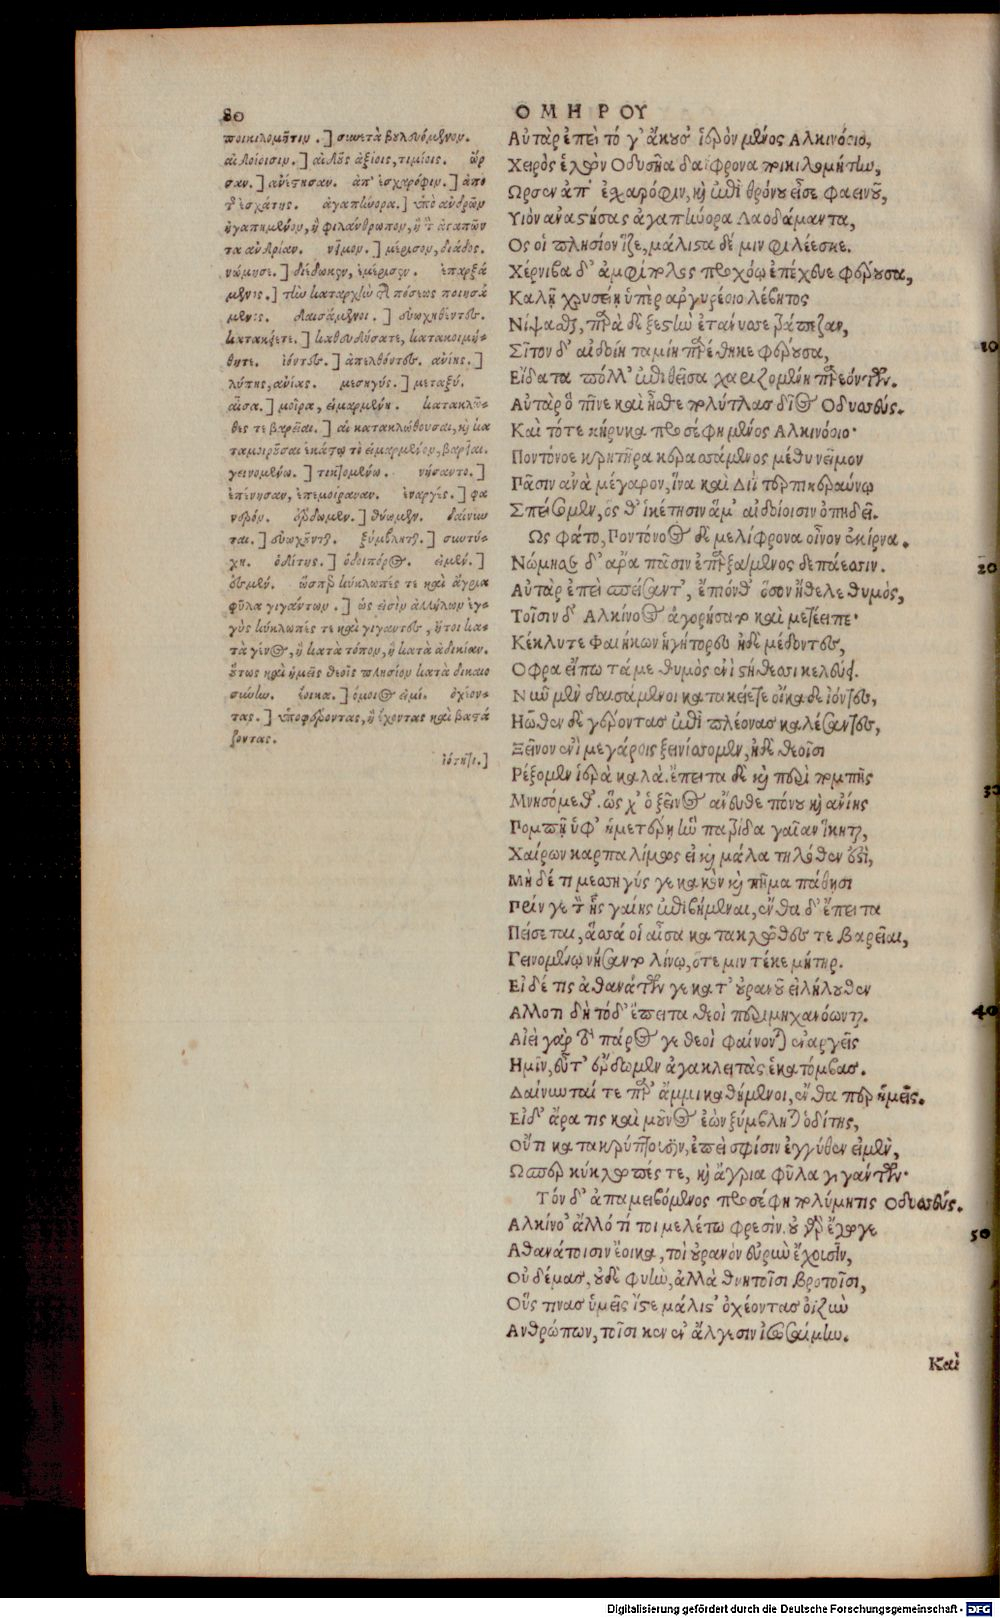 80
ΟΜΗΡΟΥ
ποικιλομήτιν .] συνετὰ βουλευόμενον.
αἰδοίοισιν.] αἰδοῦς ἀξίοις, τιμίοις. ὦρ
σαν.] ἀνέστησαν. ἀπ' ἐσχαρόφιν.] ἀπὸ
τῆς ἐσχάτης. ἀγαπήνορα.] ὑπὸ ἀνδρῶν
ἠγαπημένον, ἢ φιλάνθρωπον, ἢ τὸ ἀγαπῶν
τα ἀνδρίαν. νεῖμον.] μέρισον, διάδος.
νώμησε.] διέδωκεν, ἐμέρισεν. ἐπαρξά
μενος.] τὴν καταρχὴν τῆς πόσεως ποιησά
μενος. δαισάμενοι.] εὐωχηθέντες.
κατακείετε.] καθευδύσατε, κατακοιμή-
θητε. ἰόντες.] ἀπελθόντες. ἀνίης.]
λύπης, ἀνίας. μεσηγύς.] μεταξύ.
αἶσα.] μοῖρα, εἱμαρμένη. κατακλῶ-
θες τε βαρεῖαι.] αἱ κατακλώθουσαι, καὶ κα
ταμοιροῦσαι ἑκάστῳ τὸ εἱμαρμένον, βαρεῖαι.
γεινομένῳ.] τικτομένῳ. νήσαντο.]
ἐπένησαν, ἐπεμοίραναν. ἐναργές.] φα
νερόν. ἔρδωμεν.] θύωμεν. δαίνυν
ται.] εὐωχοῦνται. ξύμβληται.] συντύ-
χῃ. ὁδίτης.] ὁδοιπόρος. εἰμέν.]
ἐσμέν. ὥσπερ κύκλωπές τε καὶ ἄγρια
φῦλα γιγάντων.] ὡς εἰσὶν ἀλλήλων ἐγ-
γὺς κύκλωπές τε καὶ γίγαντες, ἤτοι κα-
τὰ γένος, ἢ κατὰ τόπον, ἢ κατὰ ἀδικίαν.
οὕτως καὶ ἡμεῖς θεοῖς πλησίον κατὰ δικαιο
σύνην. ἔοικα.] ὅμοιός εἰμι. ὀχέον-
τας.] ὑποφέροντας, ἢ ἔχοντας καὶ βαστά
ζοντας.
ἰότητι.]
Αὐτὰρ ἐπεὶ τό γ' ἄκουσ' ἱερὸν μένος Αλκινόοιο,
Χειρὸς ἑλὼν Οδυσῆα δαΐφρονα ποικιλομήτην,
Ωρσεν ἀπ' ἐσχαρόφιν, καὶ ἐπὶ θρόνου εἷσε φαεινοῦ,
Υἱὸν ἀναστήσας ἀγαπήνορα Λαοδάμαντα,
Ος οἱ πλησίον ἷζε, μάλιστα δέ μιν φιλέεσκε.
Χέρνιβα δ' ἀμφίπολος προχόῳ ἐπέχευε φέρουσα,
Καλῇ χρυσείῃ ὑπὲρ ἀργυρέοιο λέβητος
Νίψασθαι, παρὰ δὲ ξεστὴν ἐτάνυσσε τράπεζαν,
Σῖτον δ' αἰδοίη ταμίη παρέθηκε φέρουσα,
Εἴδατα πόλλ' ἐπιθεῖσα χαριζομένη παρεόντων.
Αὐτὰρ ὃ πῖνε καὶ ἦσθε πολύτλας δῖος Οδυσσεύς.
Καὶ τότε κήρυκα προσέφη μένος Αλκινόοιο·
Ποντόνοε κρητῆρα κερασσάμενος μέθυ νεῖμον
Πᾶσιν ἀνὰ μέγαρον, ἵνα καὶ Διῒ τερπικεραύνῳ
Σπείσομεν, ὅς θ' ἱκέτησιν ἅμ' αἰδοίοισιν ὀπηδεῖ.
Ως φάτο, Ποντόνοος δὲ μελίφρονα οἶνον ἐκίρνα.
Νώμησε δ' ἄρα πᾶσιν ἐπαρξάμενος δεπάεσσιν.
Αὐτὰρ ἐπεὶ σπεῖσαντ', ἔπιόνθ' ὅσον ἤθελε θυμός,
Τοῖσιν δ' Αλκίνοος ἀγορήσατο καὶ μετέειπε·
Κέκλυτε Φαιήκων ἡγήτορες ἠδὲ μέδοντες,
Οφρα εἴπω τά με θυμὸς ἐνὶ στήθεσσι κελεύει.
Νῦν μὲν δαισάμενοι κατακείετε οἴκαδε ἰόντες,
Ηῶθεν δὲ γέροντας ἐπὶ πλέονας καλέσαντες,
Ξεῖνον ἐνὶ μεγάροις ξεινίσσομεν, ἠδὲ θεοῖσι
Ρέξομεν ἱερὰ καλὰ. ἔπειτα δὲ καὶ περὶ πομπῆς
Μνησόμεθ'. ὥς χ' ὁ ξεῖνος ἄνευθε πόνου καὶ ἀνίης
Πομπῇ ὑφ' ἡμετέρῃ ἣν πατρίδα γαῖαν ἵκηται,
Χαίρων καρπαλίμως εἰ καὶ μάλα τηλόθεν ἐστὶ,
Μὴ δέ τι μεσσηγύς γε κακὸν καὶ πῆμα πάθησι
Πρίν γε τὸ ἧς γαίης ἐπιβήμεναι, ἔνθα δ' ἔπειτα
Πείσεται, ἅσσά οἱ αἶσα κατακλῶθές τε βαρεῖαι,
Γεινομένῳ νήσαντο λίνῳ, ὅτε μιν τέκε μήτηρ.
Εἰ δέ τις ἀθανάτων γε κατ' οὐρανοῦ εἰλήλουθεν
Αλλοτι δὴ τόδ' ἔπειτα θεοὶ περιμηχανόωνται.
Αἰεὶ γὰρ τὸ πάρος γε θεοὶ φαίνονται ἐναργεῖς
Ημῖν, εὖτ' ἔρδωμεν ἀγακλειτὰς ἑκατόμβας.
Δαίνυνταί τε παρ' ἄμμι καθήμενοι, ἔνθα περ ἡμεῖς.
Εἰ δ' ἄρα τις καὶ μοῦνος ἐὼν ξύμβληται ὁδίτης,
Οὔτι κατακρύπτουσιν, ἐπεὶ σφίσιν ἐγγύθεν εἰμὲν,
Ωσπερ κύκλωπές τε, καὶ ἄγρια φῦλα γιγάντων·
Τὸν δ' ἀπαμειβόμενος προσέφη πολύμητις Οδυσσεύς.
Αλκίνο' ἄλλό τί τοι μελέτω φρεσὶν. οὐ γὰρ ἔγωγε
Αθανάτοισιν ἔοικα, τοὶ οὐρανὸν εὐρὺν ἔχουσιν,
Οὐ δέμας, οὐδὲ φυὴν, ἀλλὰ θνητοῖσι βροτοῖσι,
Οὕς τινας ὑμεῖς ἴστε μάλιστ' ὀχέοντας ὀϊζὺν
Ανθρώπων, τοῖσί κεν ἐν ἄλγεσιν ἰσωσαίμην.
Καὶ
10
20
30
40
50
Digitalisierung gefördert durch die Deutsche Forschungsgemeinschaft - DFG